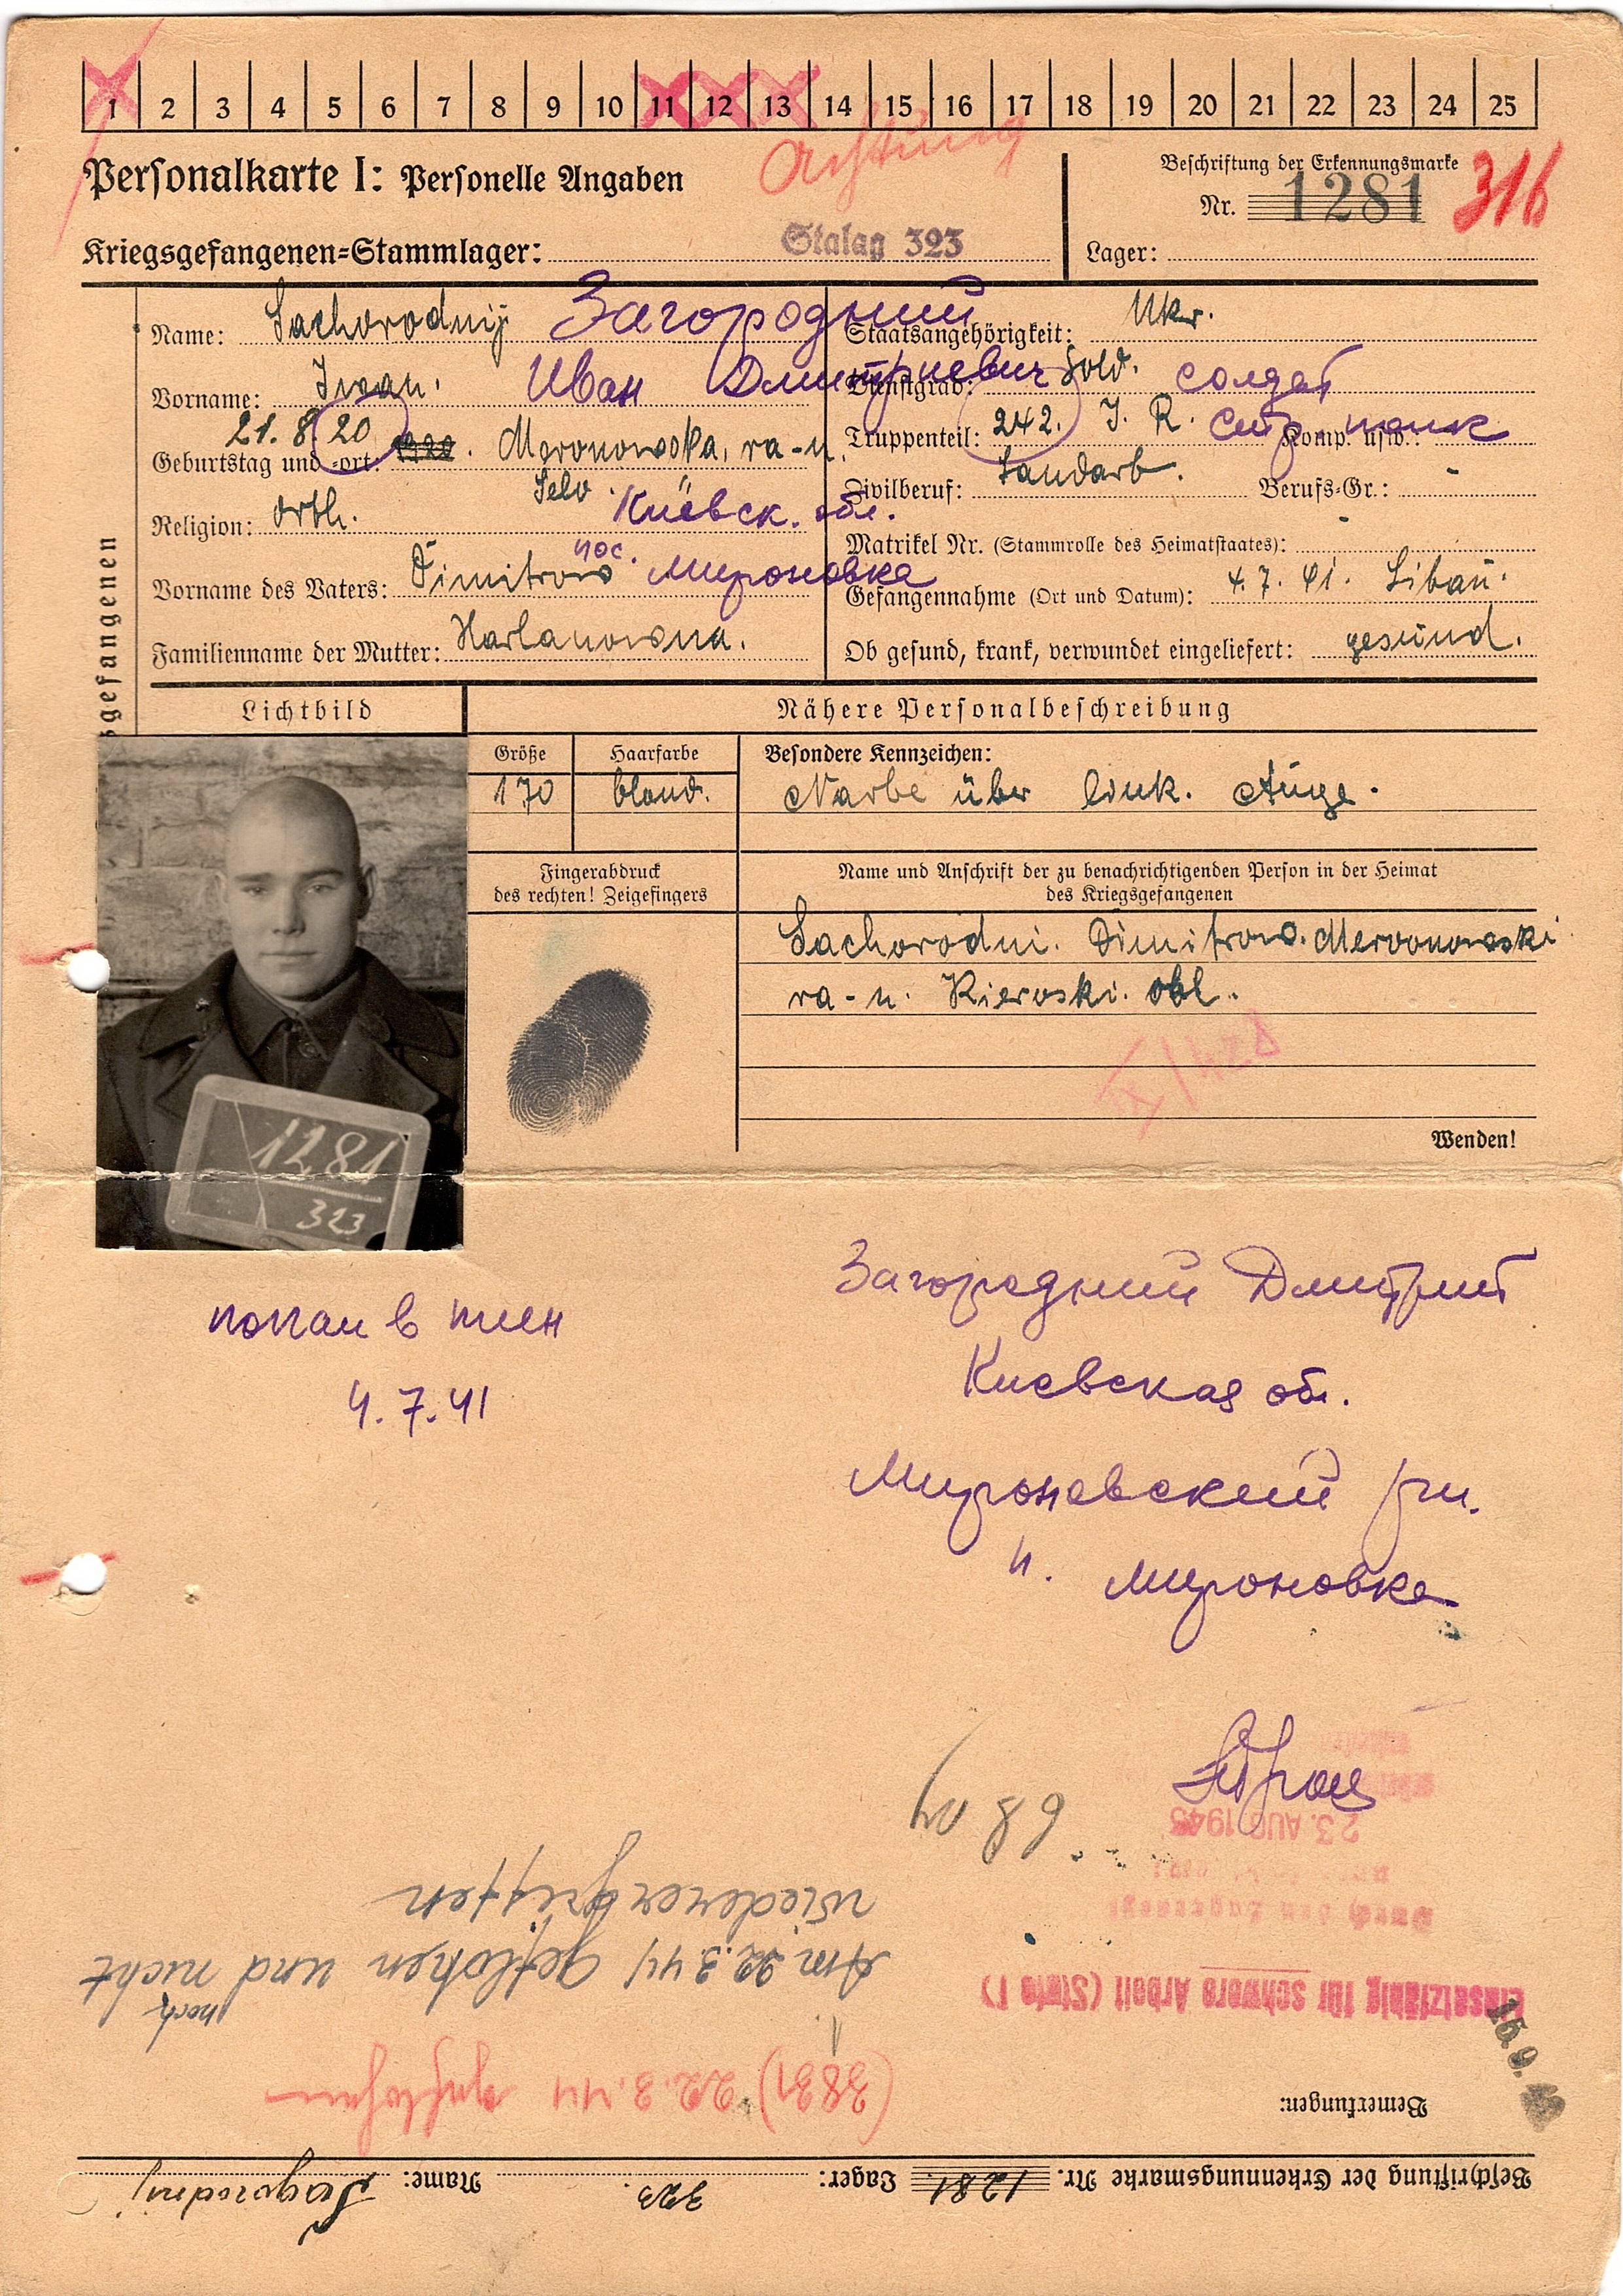 1 2 3 4 5 6 7 8 9 10 11 12 13 14 15 16 17 18 19 20 21 22 23 24 25
Achtung
Personalkarte I: Personelle Angaben
Beschriftung der Erkennungsmarke
Nr. 1281 316
Kriegsgefangenen=Stammlager: Stalag 323
Lager:
gefangenen
Name: Sachorodnij Загородний
Staatsangehörigkeit: Ukr.
Vorname: Iwan. Иван Дмитриевич
Dienstgrad: Sold. солдат
Geburtstag und -ort: 21. 8. 20 1920. Meronowska, ra-n.
Selo. Киевск. обл.
Truppenteil: 242. J. R. Стр. полк Komp. usw.:
Zivilberuf: Landarb. Berufs=Gr.: -
Religion: orth.
Matrikel Nr. (Stammrolle des Heimatstaates): -
пос. Мироновка
Vorname des Vaters: Dimitrow
Gefangennahme (Ort und Datum): 4. 7. 41. Libau.
Familienname der Mutter: Harlanowna.
Ob gesund, krank, verwundet eingeliefert: gesund.
Lichtbild
Nähere Personalbeschreibung
Größe Haarfarbe Besondere Kennzeichen:
170 blond. Narbe über link. Auge.
Fingerabdruck
des rechten! Zeigefingers
Name und Anschrift der zu benachrichtigenden Person in der Heimat
des Kriegsgefangenen
Sachorodni. Dimitrow. Meronowski
ra-n. Kiewski. obl.
Wenden!
1281
323
попал в плен
4. 7. 41
Загородний Дмитрий
Киевская обл.
Мироновский р-н.
п. Мироновка
23. AUG 1943
Einsatzfähig für schwere Arbeit (Stufe I)
15. 9.
Am 22.3.44 geflohen und noch nicht
wiederergriffen
(3831) 22.3.44 geflohen
Bemerkungen:
Beschriftung der Erkennungsmarke Nr. 1281. Lager: 323. Name: Sagorodnij